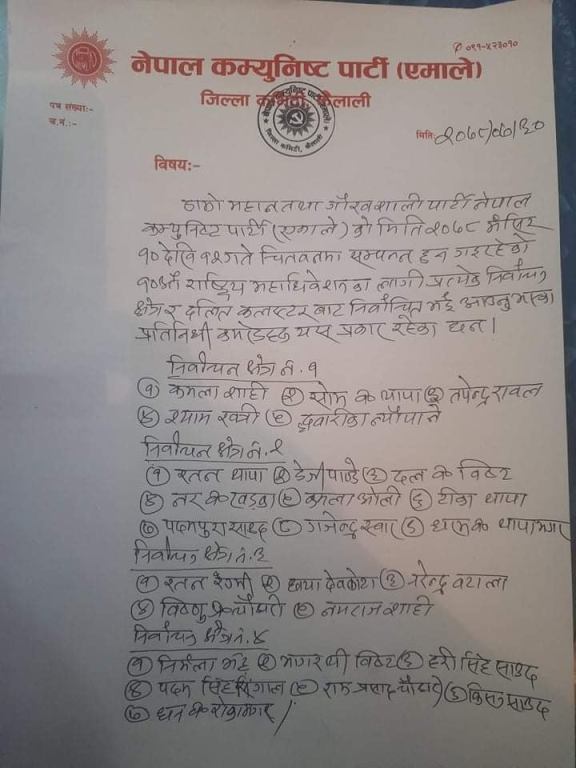 ✆ ०९१-५२३०१०
नेपाल कम्युनिष्ट पार्टी (एमाले)
जिल्ला कमिटी, कैलाली
पत्र संख्या:-
च.नं.:-
मिति: २०७८/०७/३०
विषय:-
हाम्रो महान तथा गौरवशाली पार्टी नेपाल
कम्युनिष्ट पार्टी (एमाले) को मिति २०७८ मंसिर
१० देखि १२ गते चितवनमा सम्पन्न हुन गइरहेको
१०औं राष्ट्रिय महाधिवेशनका लागी प्रत्येक निर्वाचन
क्षेत्र र दलित कलस्टर बाट निर्वाचित भई आउनु भएका
प्रतिनिधी कमरेडहरु यस प्रकार रहेका छन्।
निर्वाचन क्षेत्र नं. १
① कमला शाही ② सोम के थापा ③ तपेन्द्र रावल
④ श्याम खत्री ⑤ द्वारीका न्यौपाने
निर्वाचन क्षेत्र नं. २
① रतन थापा ② पाण्डे ③ दल के विष्ट
④ नर के खड्का ⑤ कमला ओली ⑥ टीका थापा
⑦ पदमप्रसाद ⑧ गजेन्द्र ⑨ धाम के थापा मगर
निर्वाचन क्षेत्र नं. ३
① रतन रेग्मी ② छाया देवकोटा ③ नरेन्द्र
④ विष्णु प्र चौधरी ⑤ नमराज शाही
निर्वाचन क्षेत्र नं. ४
① निर्मला भट्ट ② भागरथी विष्ट ③ हरी सिंह साउद
④ पदम सिंह ⑤ राम प्रसाद चौधरी ⑥ साउद
⑦ धन के रोकामगर /